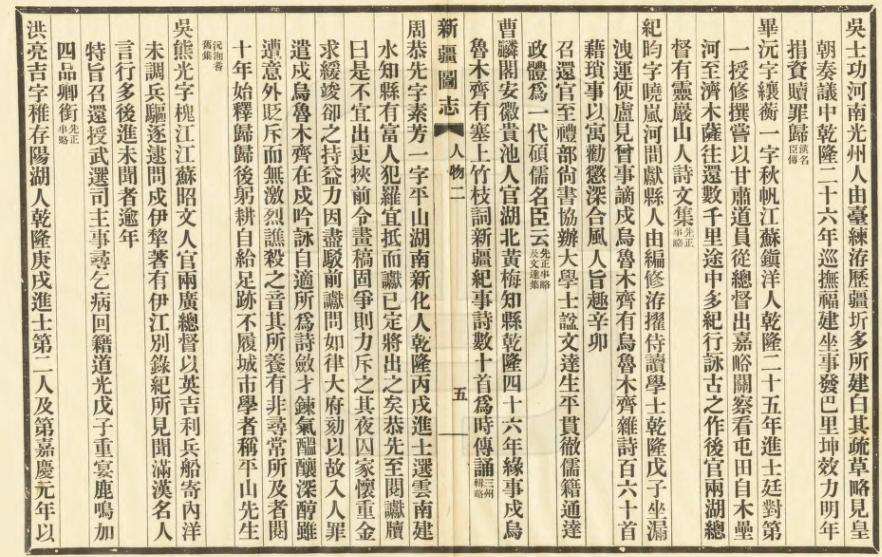 吳士功河南光州人由臺練洊歷疆圻多所建白其疏草略見皇
朝奏議中乾隆二十六年巡撫福建坐事發巴里坤效力明年
捐資贖罪歸滿名臣傳
畢沅字纕蘅一字秋帆江蘇鎭洋人乾隆二十五年進士廷對第
一授修撰嘗以甘肅道員從總督出嘉峪關察看屯田自木壘
河至濟木薩往還數千里途中多紀行詠古之作後官兩湖總
督有靈巖山人詩文集先正事略
紀昀字曉嵐河間獻縣人由編修洊擢侍讀學士乾隆戊子坐漏
洩運使盧見曾事謫戍烏魯木齊有烏魯木齊雜詩百六十首
藉瑣事以寓勸懲深合風人旨趣辛卯
召還官至禮部尙書協辦大學士諡文達生平貫徹儒籍通達
政體爲一代碩儒名臣云先正事略及文達集
曹麟閣安徽貴池人官湖北黃梅知縣乾隆四十六年緣事戍烏
魯木齊有塞上竹枝詞新疆紀事詩數十首爲時傳誦三州輯略
新疆圖志 人物二 五
周恭先字素芳一字平山湖南新化人乾隆丙戌進士選雲南建
水知縣有富人犯羅宜抵而讞已定將出之矣恭先至閱讞牘
曰是不宜出吏挾前令畫稿固爭則力斥之其夜囚家懷重金
求緩竣卻之持益力因盡駁前讞問如律大府劾以故入人罪
遣戍烏魯木齊在戍吟詠自適所爲詩斂才鍊氣醞釀深醇雖
遭意外貶斥而無激烈譙殺之音其所養有非尋常所及者閱
十年始釋歸歸後躬耕自給足跡不履城市學者稱平山先生
沅湘耆舊集
吳熊光字槐江江蘇昭文人官兩廣總督以英吉利兵船寄內洋
未調兵驅逐逮問戍伊犂著有伊江別錄紀所見聞滿漢名人
言行多後進未聞者逾年
特旨召還授武選司主事尋乞病回籍道光戊子重宴鹿鳴加
四品卿銜先正事略
洪亮吉字稚存陽湖人乾隆庚戌進士第二人及第嘉慶元年以